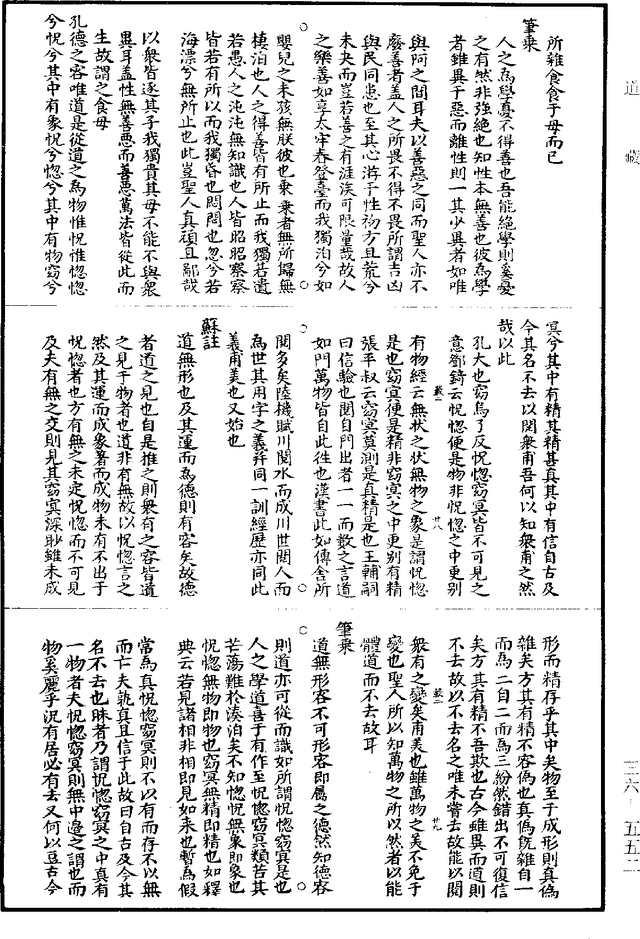 所雜食食于母而已
筆乘
人之為學憂不得善也吾能絕學則奚憂
之有然非強絕也知性本無善也彼為學
者雖異于惡而離性則一其少異者如唯
與阿之間耳夫以善惡之同而聖人亦不
廢善者盖人之所畏不得不畏所謂吉凶
與民同患也至其心游于性初方且荒兮
未央而豈若善之有涯涘可限量哉故人
之樂善如享太牢春登臺而我獨泊兮如
嬰兒之未孩無朕彼也乘乘者無所歸無
棲泊也人之得善皆有所止而我獨若遺
若愚人之沌沌無知識也人皆昭昭察察
皆若有所以而我獨昏也悶悶也忽兮若
海漂兮無所止也此豈聖人真頑且鄙哉
以衆皆逐其子我獨貴其母不能不與衆
異耳盖性無善惡而善惡萬法皆從此而
生故謂之食母
孔德之容唯道是從道之為物惟怳惟惚惚
兮怳兮其中有象怳兮惚兮其中有物窈兮
冥兮其中有精其精甚真其中有信自古及
今其名不去以閱衆甫吾何以知衆甫之然
哉以此
孔大也窈烏了反怳惚窈冥皆不可見之
意鄧錡云怳惚便是物非怳惚之中更別
有物經云無狀之狀無物之象是謂怳惚
是也窈冥便是精非窈冥之中更別有精
張平叔云窈冥莫測是真精是也王輔嗣
曰信驗也閱自門出者一一而數之言道
如門萬物皆自此往也漢書此如傳舍所
閱多矣陸機賦川閱水而成川世閱人而
為世其用字之義并同一訓經歷亦同此
義甫美也又始也
蘇註
道無形也及其運而為德則有容矣故德
者道之見也自是推之則衆有之容皆道
之見于物者也道非有無故以怳惚言之
然及其運而成象著而成物未有不出于
怳惚者也方有無之未定怳惚而不可見
及夫有無之交則見其窈冥深眇雖未成
形而精存乎其中矣物至于成形則真偽
雜矣方其有精不容偽也真偽既雜自一
而為二自二而為三紛然錯出不可復信
矣方其有精不吾欺也古今雖異而道則
不去故以不去名之唯未嘗去故能以閱
衆有之變矣甫美也雖萬物之美不免于
變也聖人所以知萬物之所以然者以能
體道而不去故耳
筆乘
道無形容不可形容即屬之德然知德容
則道亦可從而識如所謂怳惚窈冥是也
人之學道喜于有作至怳惚窈冥類苦其
芒蕩難於湊泊矣不知惚怳無象即象也
怳惚無物即物也窈冥無精即精也如釋
典云若見諸相非相即見如来也暫為假
常為真怳惚窈冥則不以有而存不以無
而亡夫孰真且信于此故曰自古及今其
名不去也昧者乃謂怳惚窈冥之中真有
一物者夫怳惚窈冥則無中邊之謂也而
物奚麗乎況有居必有去又何以亘古今
道
藏
三六
五五二